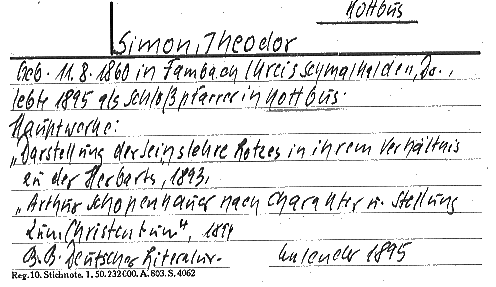 Kottbus
Simon, Theodor
Geb. 11.8.1860 in Fambach (Kreis Schmalkalden), Dr.,
lebte 1895 als Schloßpfarrer in Kottbus.
Hauptwerke:
„Darstellung der Seinslehre Lotzes in ihrem Verhältnis
zu der Herbarts, 1893,
„Arthur Schopenhauer nach Charakter u. Stellung
zum Christentum", 
B.B. Deutscher Literatur- Kalender 1895
Reg. 10. Stichnote. 1. 50. 232 000. A. 803. S. 4062